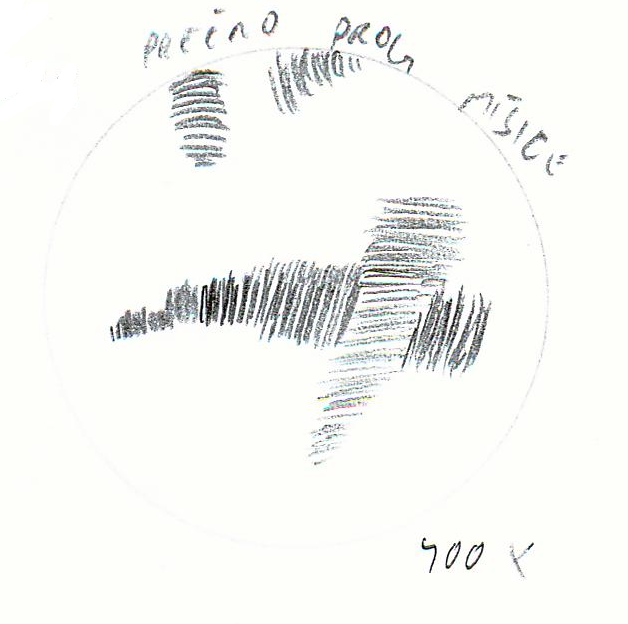 PREČNO PROG MIŠICE
400 X